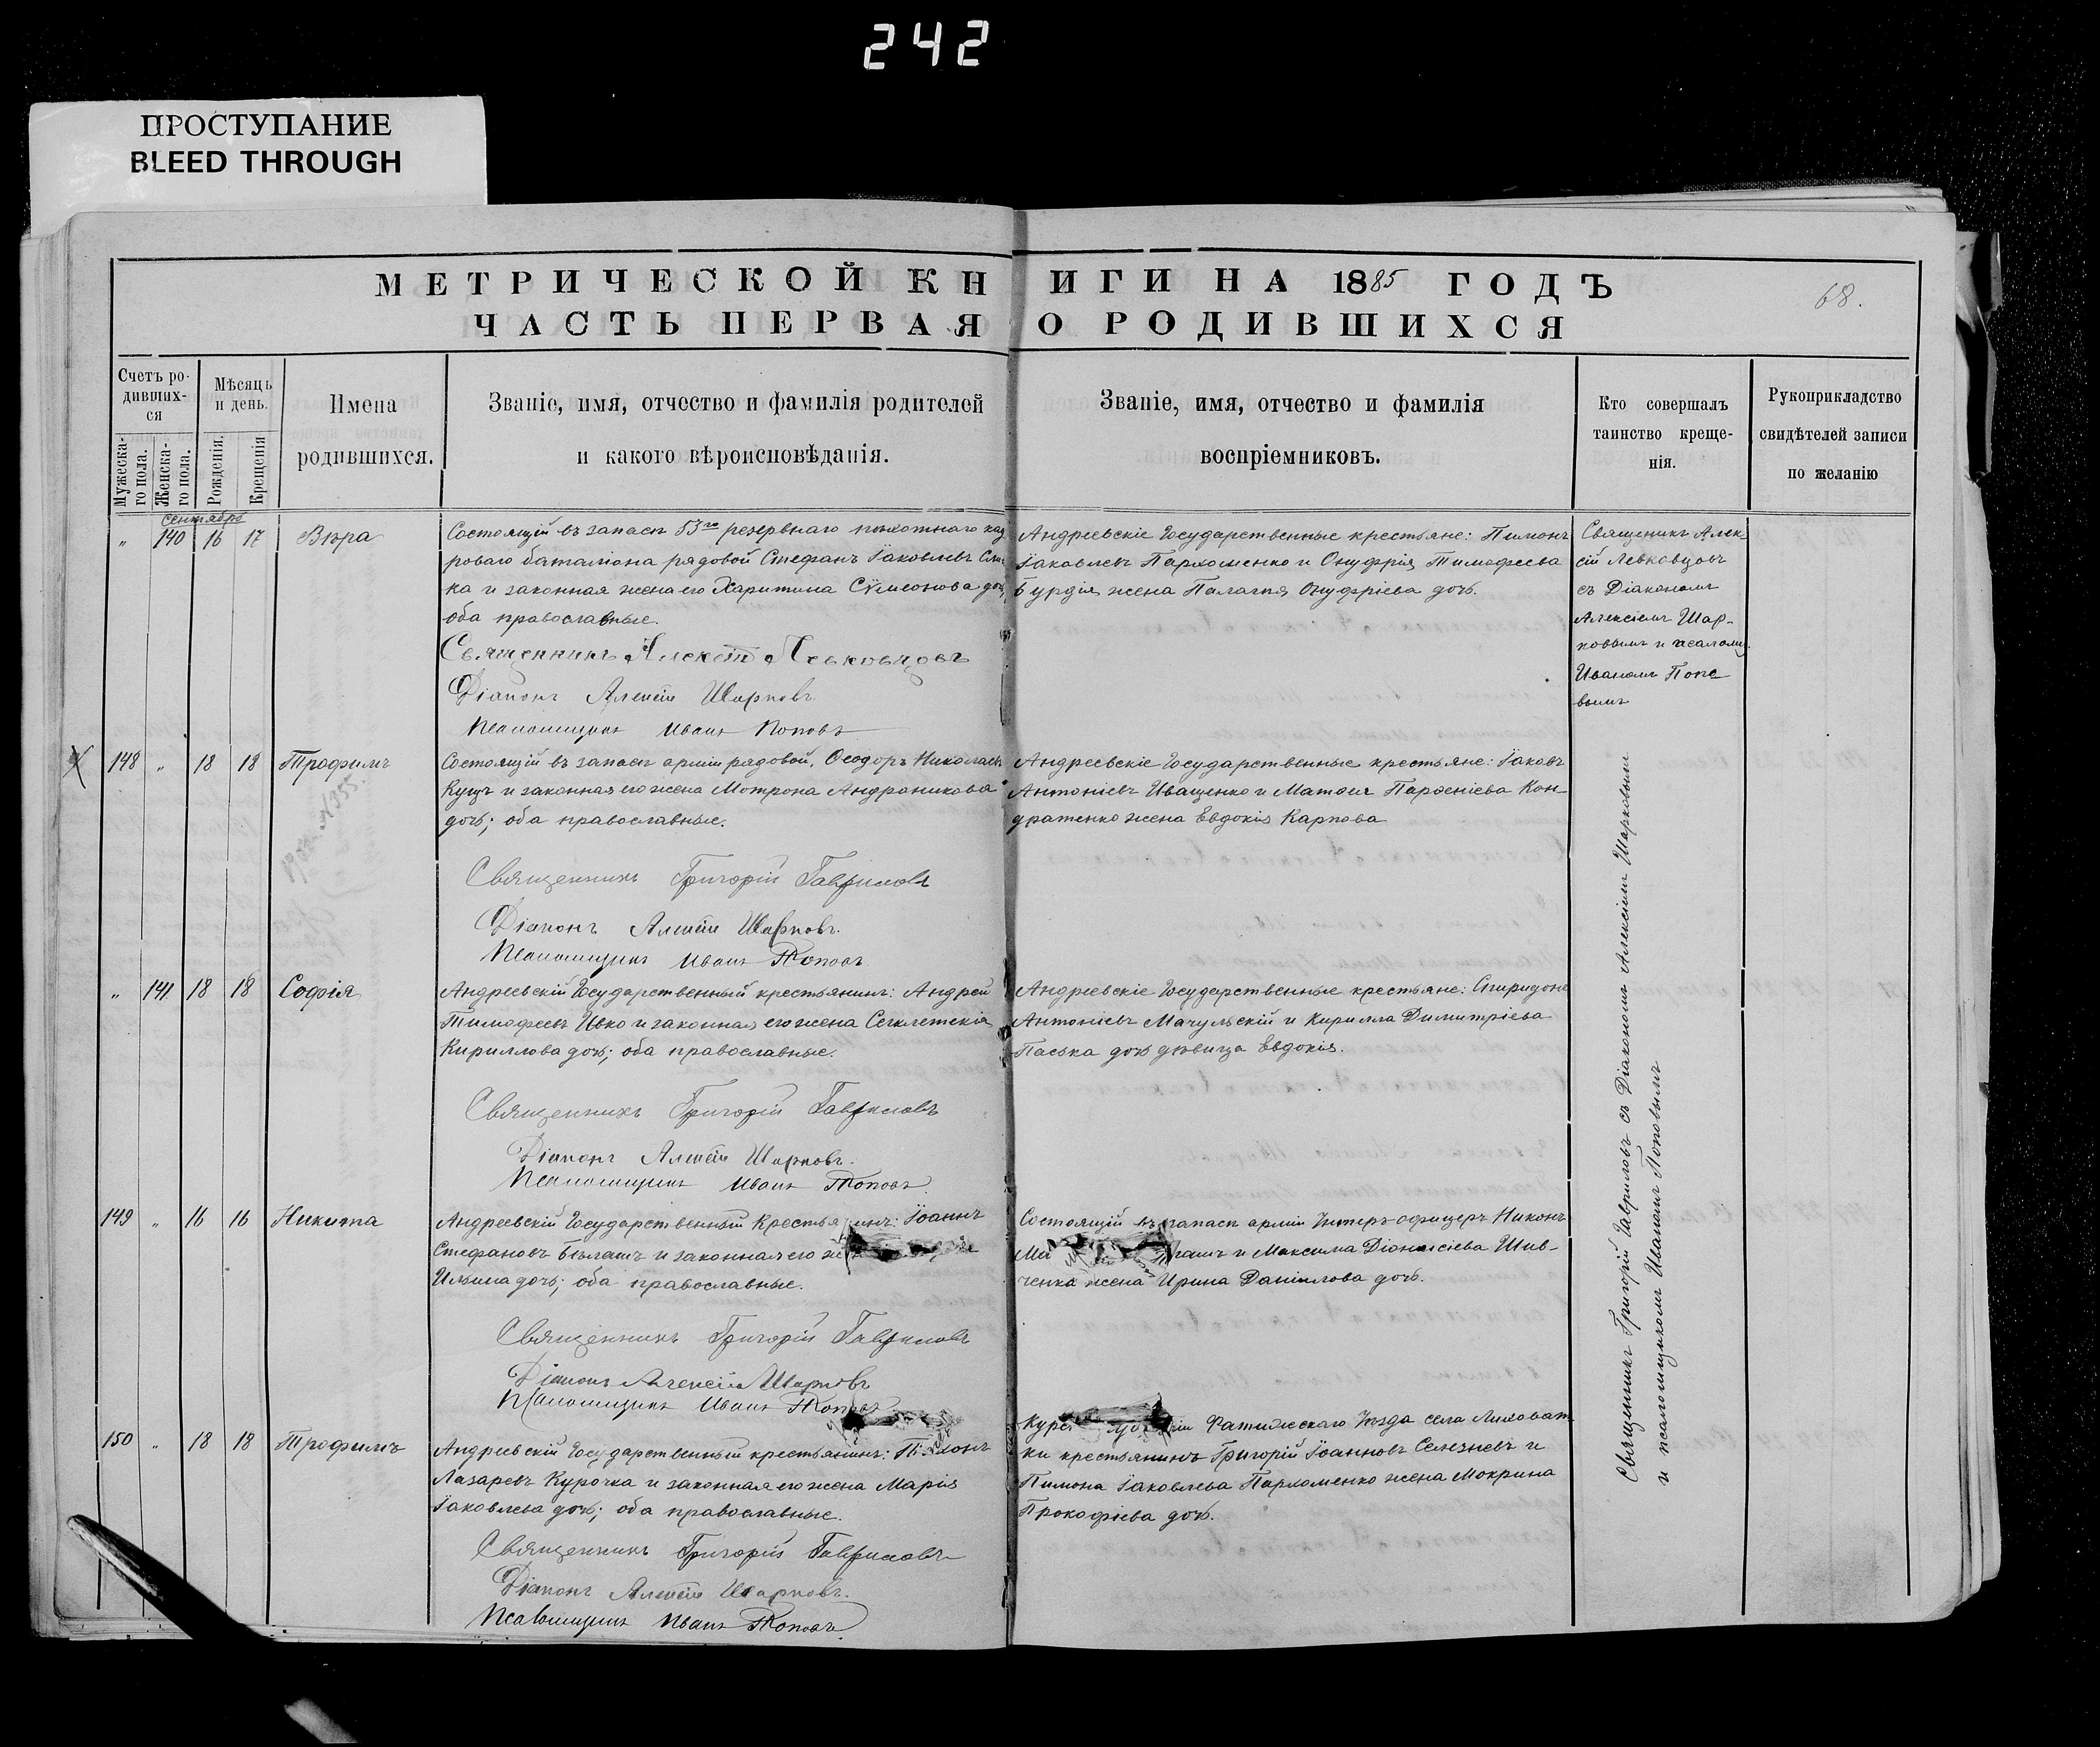 242
ПРОСТУПАНИЕ
BLEED THROUGH
МЕТРИЧЕСКОЙ КНИГИ НА 1885 ГОДЪ
68.
ЧАСТЬ ПЕРВАЯ О РОДИВШИХСЯ
Счетъ ро-
дивших-
ся
Мужеска-
го пола.
Женска-
го пола.
Мѣсяцъ
и день.
Рожденія.
Крещенія
Имена
родившихся.
Званіе, имя, отчество и фамилія родителей
и какого вѣроисповѣданія.
Званіе, имя, отчество и фамилія
воспріемниковъ.
Кто совершалъ
таинство креще-
нія.
Рукоприкладство
свидѣтелей записи
по желанію
Сентябрь
" 140 16 17 Вѣра
Состоящій въ запасѣ 53го резервнаго пѣхотнаго кад
роваго баталіона рядовой Стефанъ Іаковлевъ
ка и законная жена его Харитина Сѵмеонова доч,
оба православные.
Священникъ Алексій Левковцовъ
Діаконъ Алексій Шарковъ
Псаломщикъ Иванъ Поповъ
Андреевскіе Государственные крестьяне: Пимонъ
Іаковлевъ Пархоменко и Онуфрія Тимофеева
Бурдія жена Палагія Онуфріева дочь.
Священикъ Алек
сій Левковцовъ
съ Діакономъ
Алексіемъ Шар-
ковымъ и псаломщ.
Иваномъ Попо
вымъ
148 " 18 18 Трофимъ
Состоящій въ запасѣ арміи рядовой, Ѳеодоръ Николаевъ
Кущъ и законная его жена Мотрона Андроникова
дочь; оба православные.
Священникъ Григорій Гавриловъ
Діаконъ Алексій Шарковъ.
Псаломщикъ Иванъ Поповъ
Андреевскіе Государственные крестьяне: Іаковъ
Антоніевъ Иващенко и Матѳія Парѳеніева Кон-
дратенко жена Евдокія Карпова
" 141 18 18 Софія
Андреевскій Государственный крестьянинъ: Андрей
Тимофеевъ Ивко и законная его жена Секлетекія
Кириллова дочь; оба православные.
Священникъ Григорій Гавриловъ
Діаконъ Алексій Шарковъ.
Псаломщикъ Иванъ Поповъ
Андреевскіе Государственные крестьяне: Спиридонъ
Антоніевъ Мачульскій и Кирилла Димитріева
Паська дочь дѣвица Евдокія.
149 " 16 16 Никита
Андреевскій Государственный крестьянинъ: Іоаннъ
Стефановъ Бѣлашъ и законная его же
Ильина дочь; оба православные.
Священникъ Григорій Гавриловъ
Діаконъ Алексій Шарковъ
Псаломщикъ Иванъ Поповъ
Состоящій въ запасѣ арміи Унтеръ-офицеръ Никонъ
Ми лашъ и Максима Діонисіева Шив-
ченка жена Ирина Даніилова дочь.
150 " 18 18 Трофимъ
Андреевскій Государственный крестьянинъ:
Лазаревъ Курочка и законная его жена Марія
Іаковлева дочь; оба православные.
Священникъ Григорій Гавриловъ
Діаконъ Алексій Шарковъ.
Псаломщикъ Иванъ Поповъ.
Курс ніи Фатижескаго Уѣзда села Лиховат
ки крестьянинъ Григорій Іоанновъ Селезневъ и
Пимона Іаковлева Пархоменко жена Мокрина
Прокофіева дочь.
Священникъ Григорій Гавриловъ съ Діакономъ Алексіемъ Шарковымъ
и псаломщикомъ Иваномъ Поповымъ